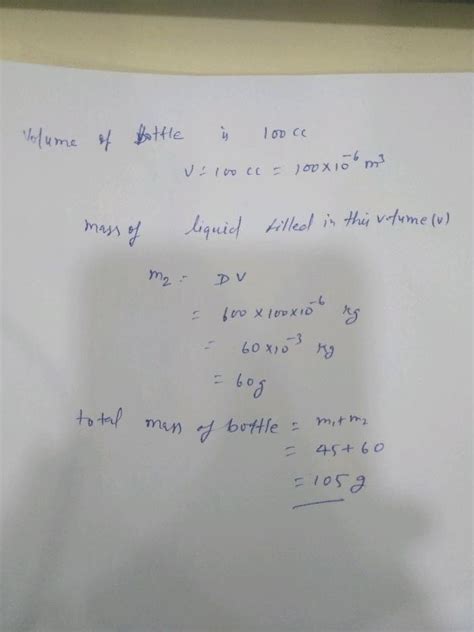 Volume of bottle is 100 cc
V = 100 cc = 100×10⁻⁶ m³
mass of liquid filled in this volume (v)
m₂ = DV
= 600 × 100×10⁻⁶ kg
= 60×10⁻³ kg
= 60g
total mass of bottle = m₁+m₂
= 45+60
= 105 g